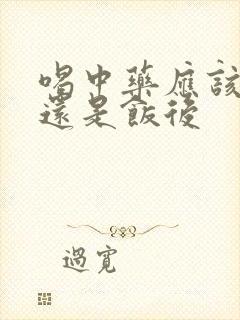 喝中藥應該
還是飯後
過寬